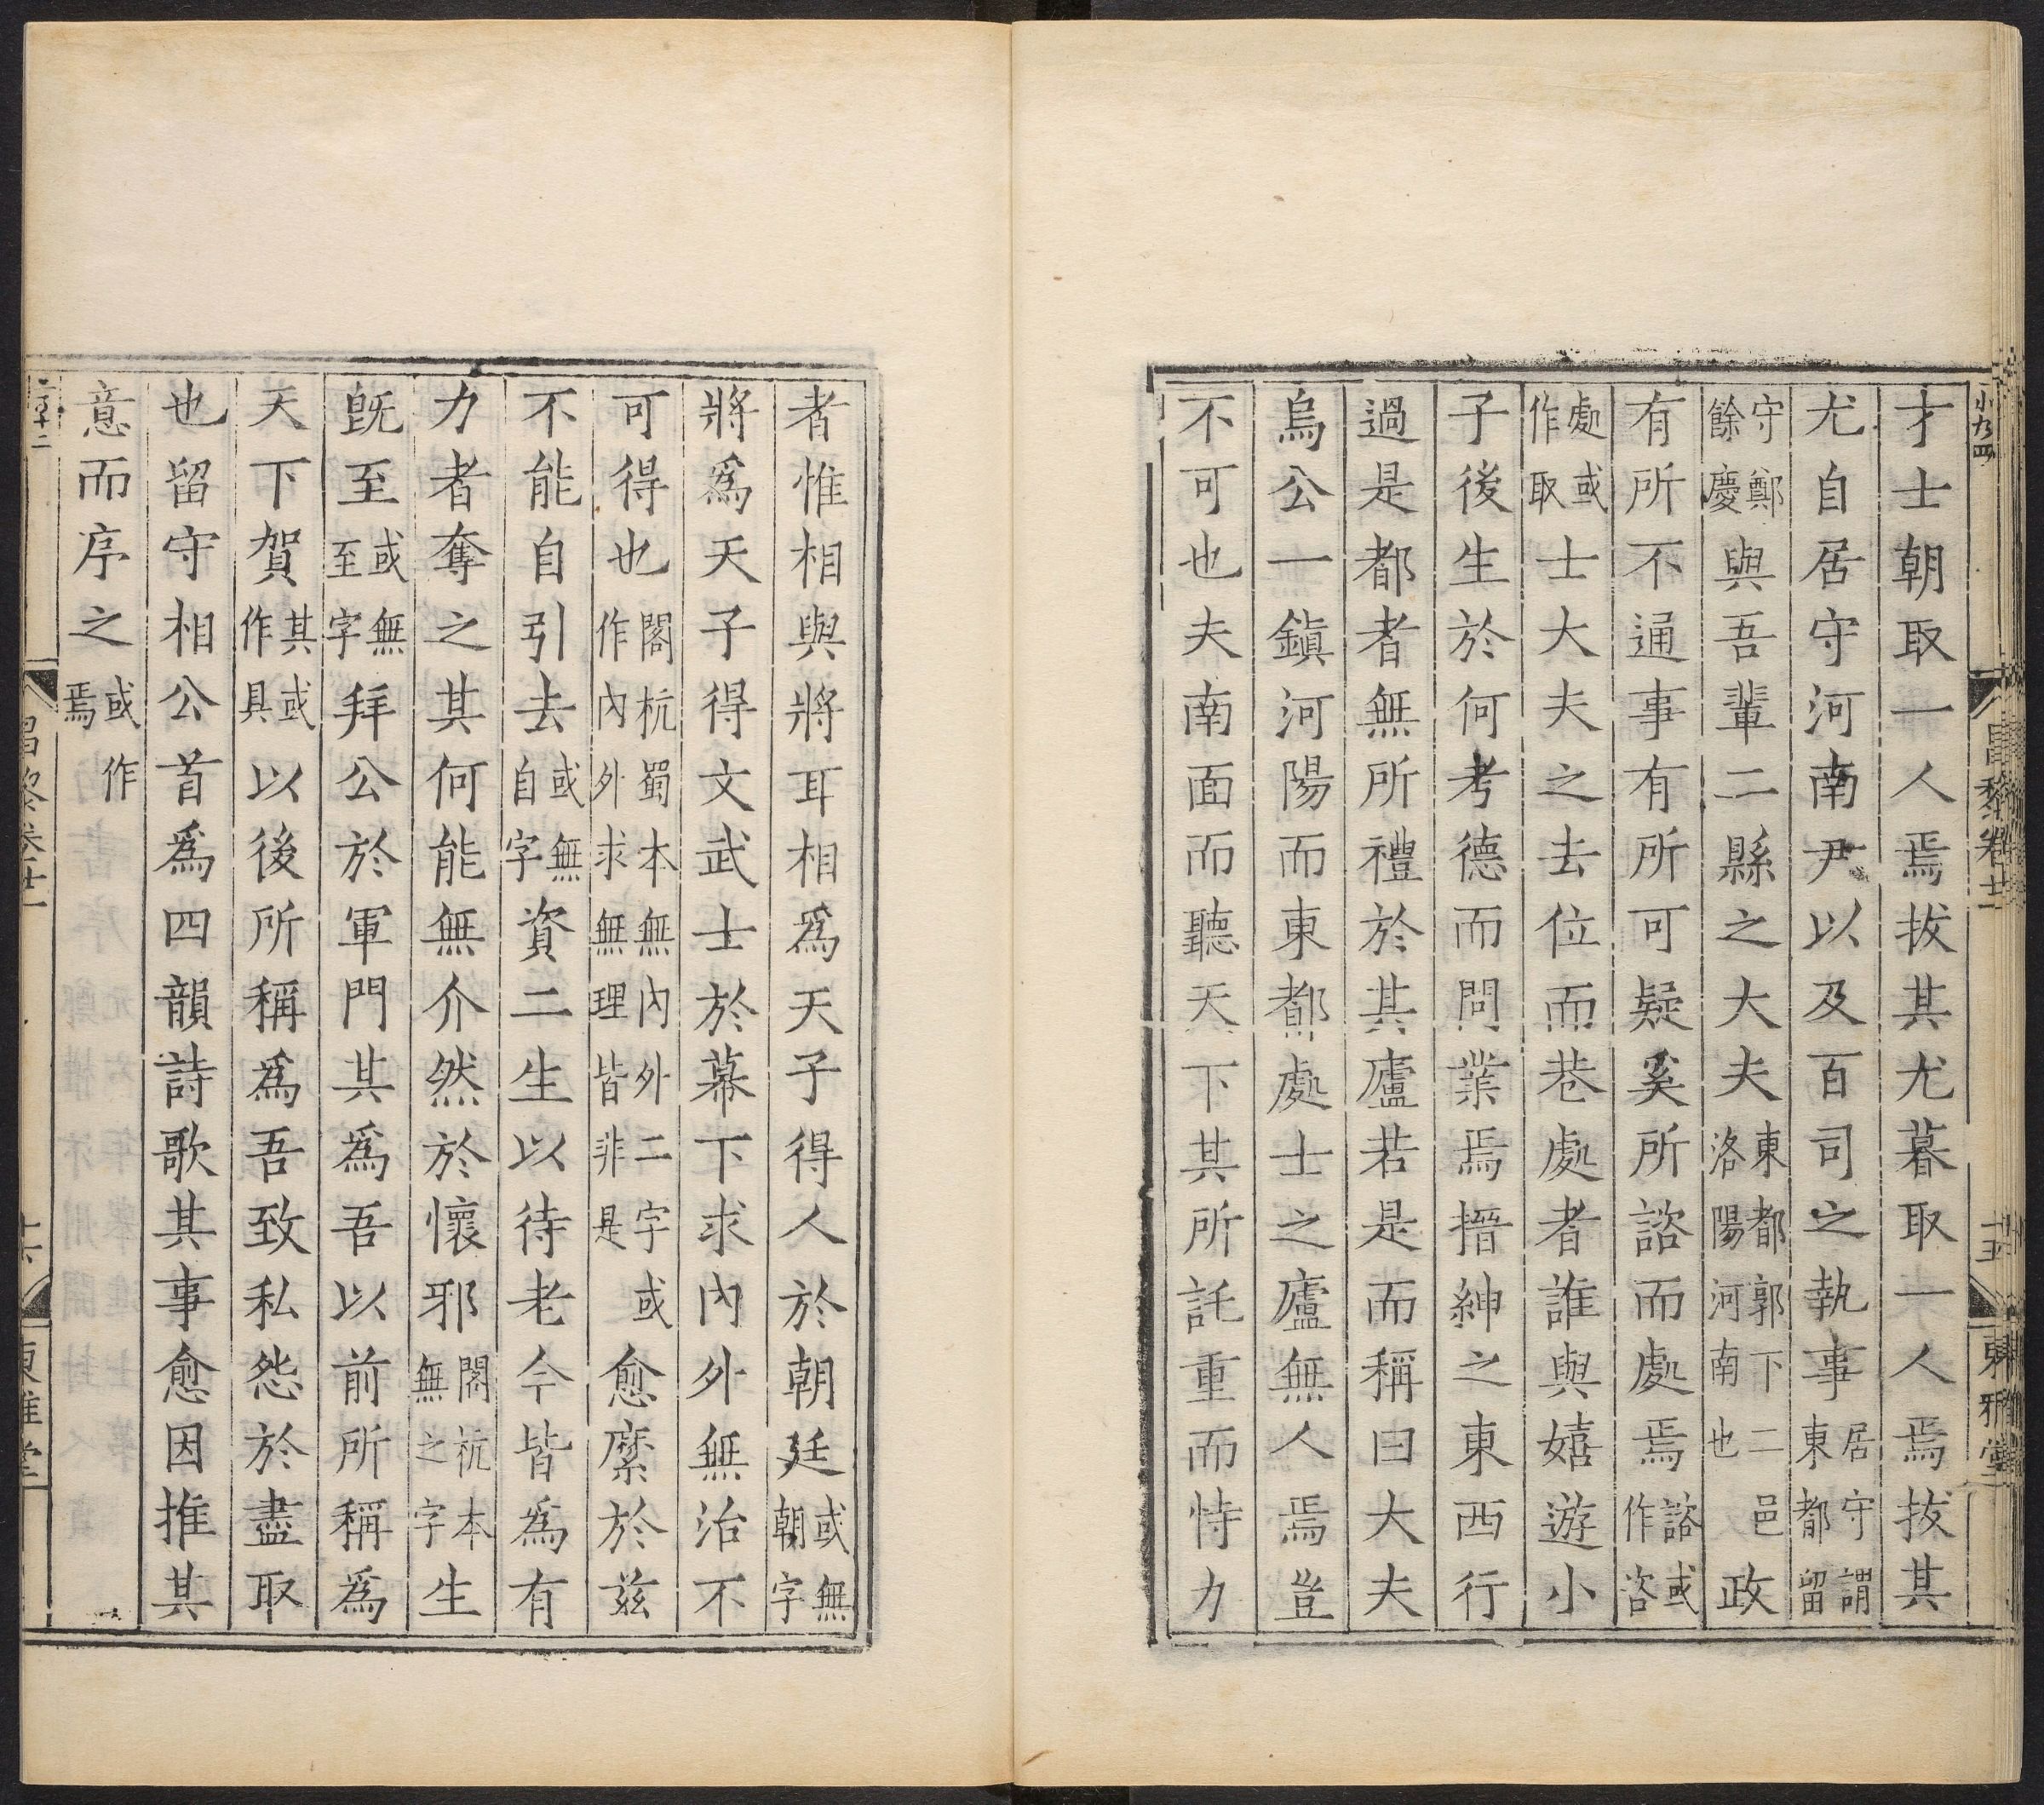 小九四
昌黎卷廿一
十五
東雅堂
才士朝取一人焉拔其尤暮取一人焉拔其
尤自居守河南尹以及百司之執事居守謂東都留
守鄭餘慶與吾輩二縣之大夫東都郭下二邑洛陽河南也政
有所不通事有所可疑奚所諮而處焉諮或作咨
處或作取士大夫之去位而巷處者誰與嬉遊小
子後生於何考德而問業焉搢紳之東西行
過是都者無所禮於其廬若是而稱曰大夫
烏公一鎮河陽而東都處士之廬無人焉豈
不可也夫南面而聽天下其所託重而恃力
者惟相與將耳相爲天子得人於朝廷或無朝字
將爲天子得文武士於幕下求內外無治不
可得也閣杭蜀本無內外二字或作內外求無理皆非是愈縻於兹
不能自引去或無自字資二生以待老今皆爲有
力者奪之其何能無介然於懷邪閣杭本無之字生
旣至或無至字拜公於軍門其爲吾以前所稱爲
天下賀其或作具以後所稱爲吾致私怨於盡取
也留守相公首爲四韻詩歌其事愈因推其
意而序之或作焉
昌黎卷廿一
十六
東雅堂